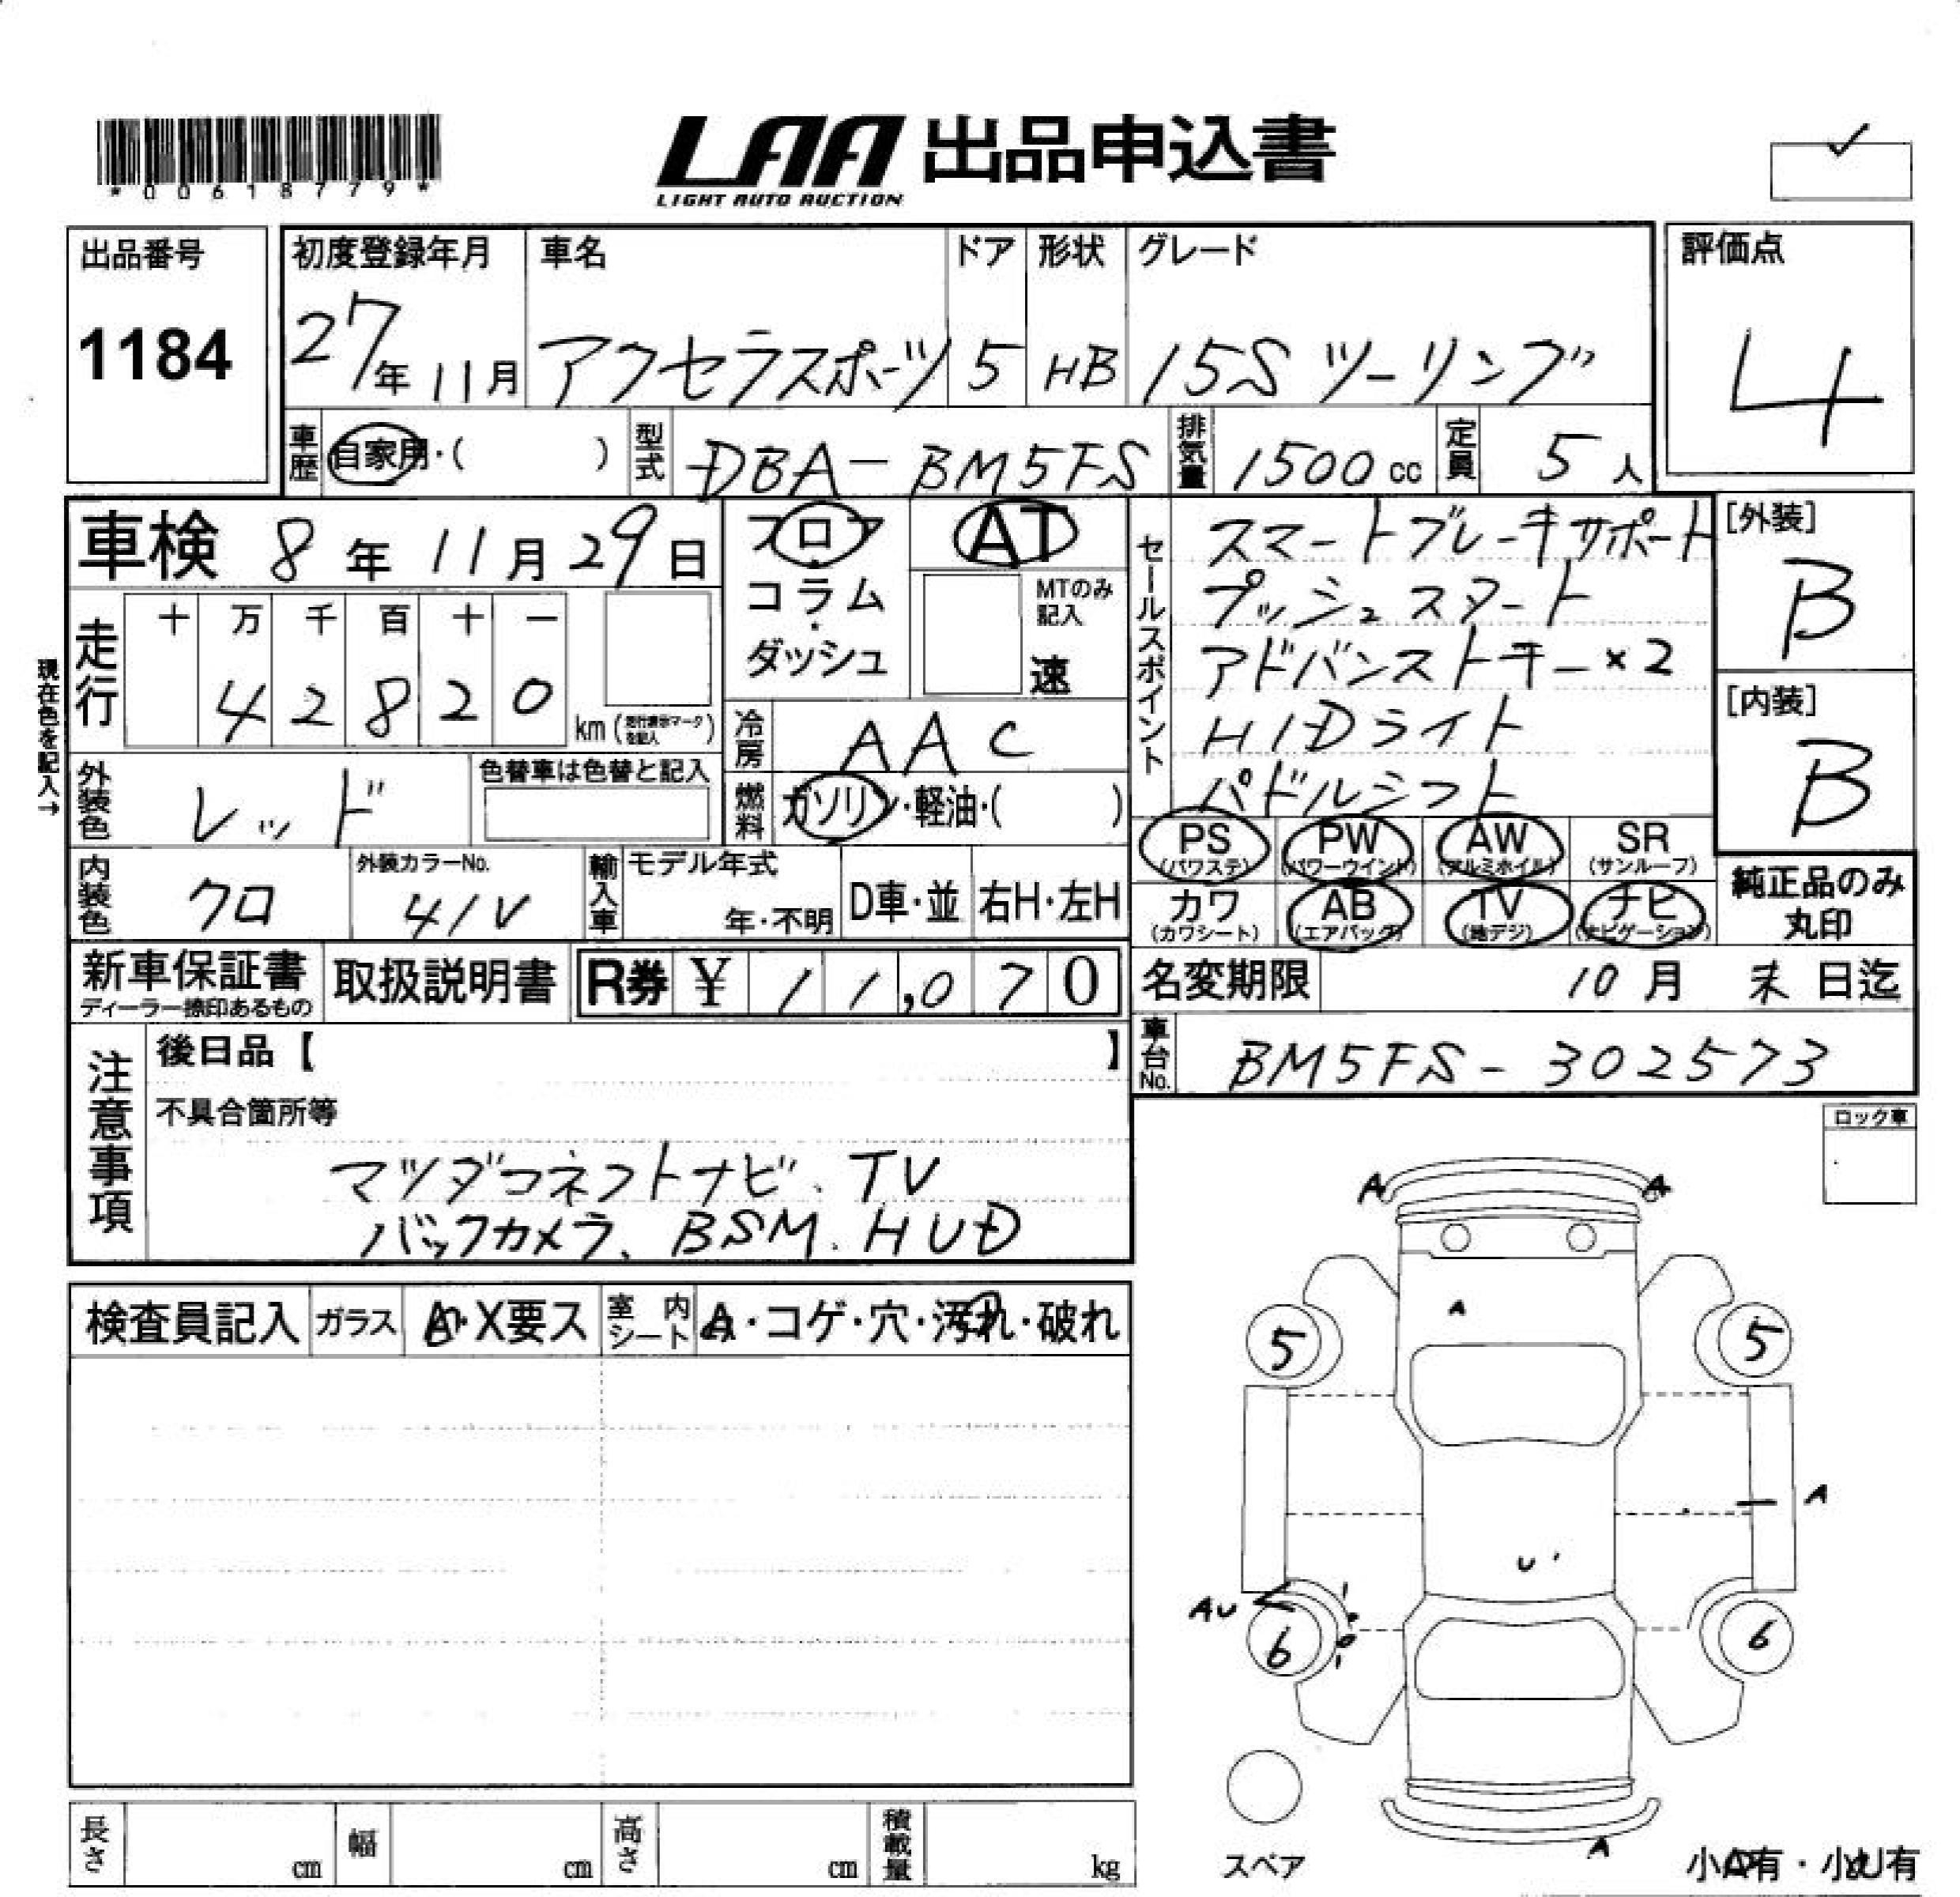 *00618779*
LAA 出品申込書
LIGHT AUTO AUCTION
出品番号
1184
初度登録年月
27年 11月
車名
アクセラスポーツ
ドア
5
形状
HB
グレード
15S ツーリング
評価点
4
車歴
自家用・( )
型式
DBA-BM5FS
排気量
1500cc
定員
5人
車検 8年 11月 29日
フロア
コラム
ダッシュ
AT
MTのみ
記入
速
セールスポイント
スマートブレーキサポート
プッシュスタート
アドバンストキー×2
HIDライト
パドルシフト
[外装]
B
[内装]
B
現在色を記入→
走行
十 万 千 百 十 一
4 2 8 2 0
km (走行表示マークを記入)
冷房
AAC
外装色
レッド
色替車は色替と記入
燃料
ガソリン・軽油・( )
PS (パワステ)
PW (パワーウインド)
AW (アルミホイル)
SR (サンルーフ)
カワ (カワシート)
AB (エアバック)
TV (地デジ)
ナビ (ナビゲーション)
純正品のみ
丸印
内装色
クロ
外装カラーNo.
41V
輸入車
モデル年式
年・不明
D車・並
右H・左H
新車保証書
ディーラー捺印あるもの
取扱説明書
R券 ¥ 11,070
名変期限 10月 末日迄
車台No.
BM5FS-302573
注意事項
後日品【 】
不具合箇所等
マツダコネクトナビ、TV
バックカメラ、BSM、HUD
ロック車
検査員記入
ガラス
A・X要ス
室内シート
A・コゲ・穴・汚れ・破れ
A A
A
5 5
A
U
AU
6 6
A
スペア
小A有・小U有
長さ cm
幅 cm
高さ cm
積載量 kg